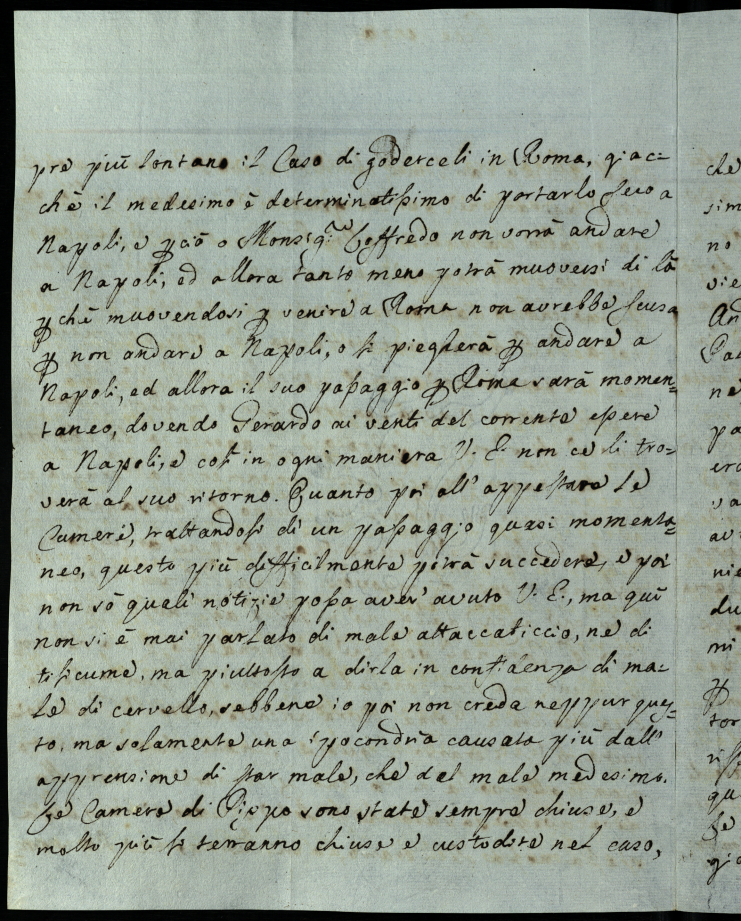 pre più lontano il Caso di goderceli in Roma, giac=
chè il medesimo è determinatissimo di portarlo seco a
Napoli, e pciò o Monsig.re Goffredo non vorrà andare
a Napoli, ed allora tanto meno potrà muoversi di là
pchè muovendosi p venire a Roma non avrebbe scusa
p non andare a Napoli, o si piegherà p andare a
Napoli, ed allora il suo passaggio p Roma sarà momen=
taneo, dovendo Gerardo ai venti del corrente essere
a Napoli, e così in ogni maniera V. E. non ce li tro=
verà al suo ritorno. Quanto poi all'appestare le
Camere, trattandosi di un passaggio quasi momenta=
neo, questo più difficilmente potrà succedere, e poi
non sò quali notizie possa aver' avuto V. E., ma quì
non si è mai parlato di male attaccaticcio, ne di
tisicume, ma piuttosto a dirla in confidenza di ma=
le di cervello, sebbene io poi non creda neppur ques=
to, ma solamente una ipocondria causata più dall'
apprensione di star male, che dal male medesimo.
Le Camere di Pippo sono state sempre chiuse, e
molto più si terranno chiuse e custodite nel caso,
che
sim
no
vie
And
né
pa
era
va
av
nie
du
mi
p
tor
qu
Le
gio